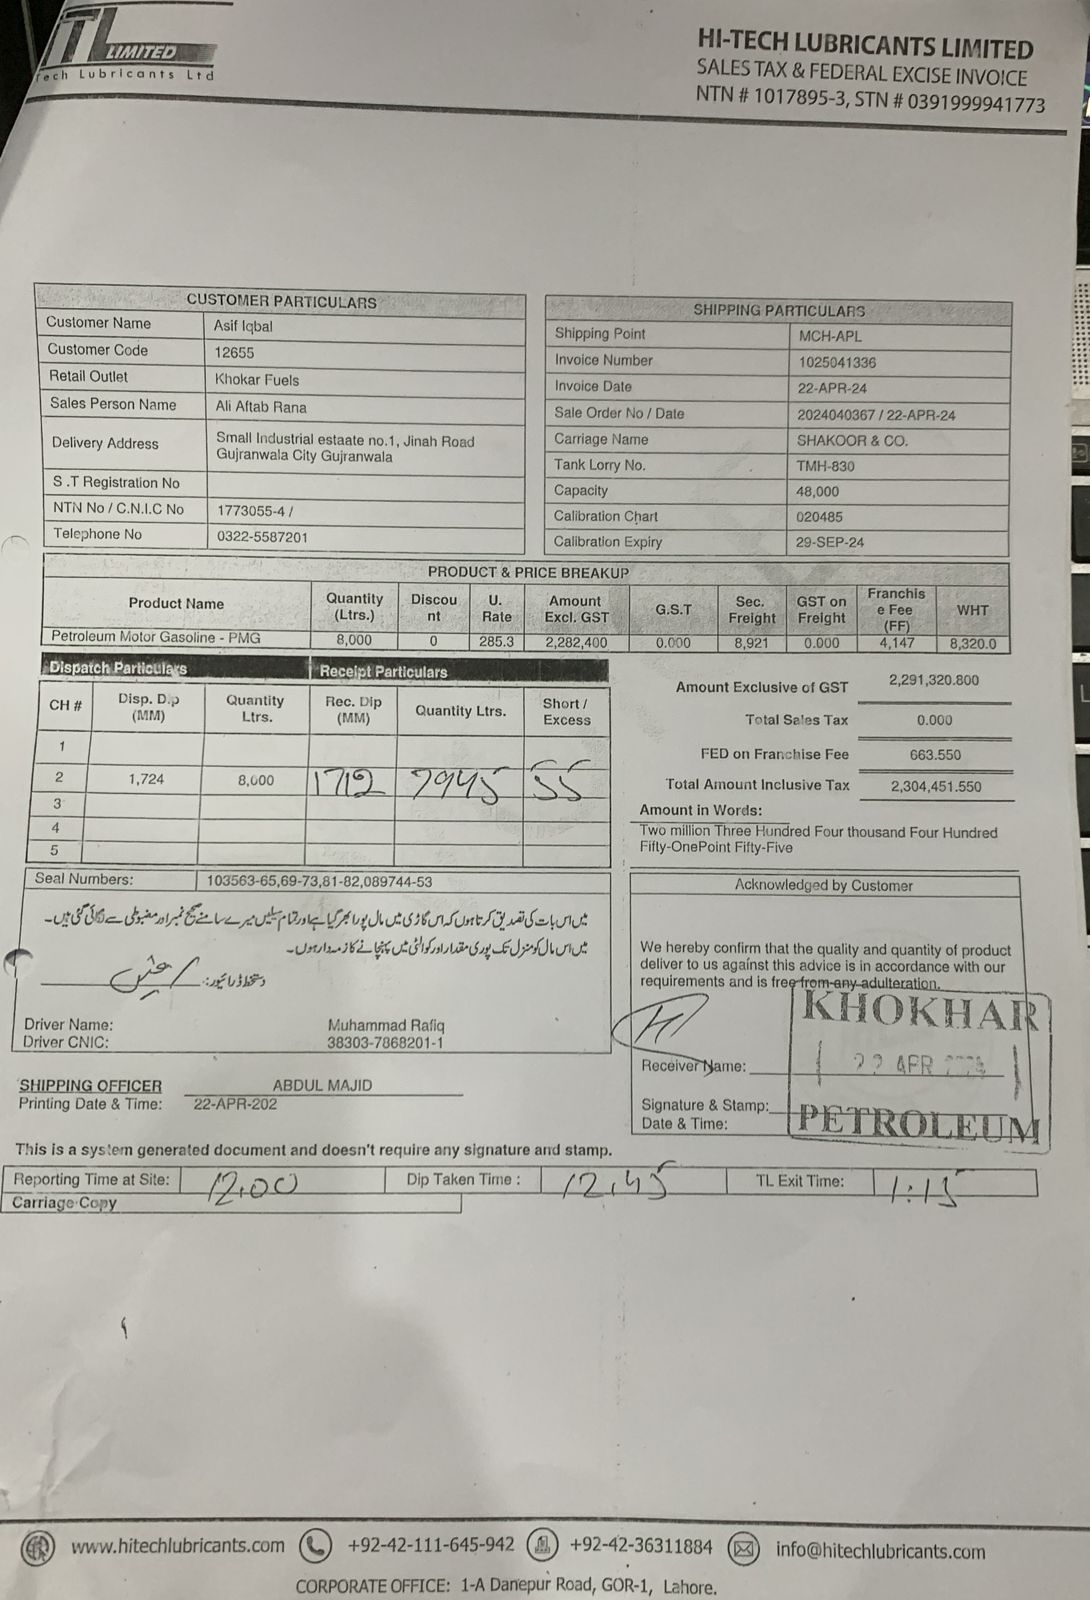 TL LIMITED
Tech Lubricants Ltd
HI-TECH LUBRICANTS LIMITED
SALES TAX & FEDERAL EXCISE INVOICE
NTN # 1017895-3, STN # 0391999941773
CUSTOMER PARTICULARS
Customer Name Asif Iqbal
Customer Code 12655
Retail Outlet Khokar Fuels
Sales Person Name Ali Aftab Rana
Delivery Address Small Industrial estaate no.1, Jinah Road
Gujranwala City Gujranwala
S .T Registration No
NTN No / C.N.I.C No 1773055-4 /
Telephone No 0322-5587201
SHIPPING PARTICULARS
Shipping Point MCH-APL
Invoice Number 1025041336
Invoice Date 22-APR-24
Sale Order No / Date 2024040367 / 22-APR-24
Carriage Name SHAKOOR & CO.
Tank Lorry No. TMH-830
Capacity 48,000
Calibration Chart 020485
Calibration Expiry 29-SEP-24
PRODUCT & PRICE BREAKUP
Product Name Quantity (Ltrs.) Discou nt U. Rate Amount Excl. GST G.S.T Sec. Freight GST on Freight Franchis e Fee (FF) WHT
Petroleum Motor Gasoline - PMG 8,000 0 285.3 2,282,400 0.000 8,921 0.000 4,147 8,320.0
Dispatch Particulars Receipt Particulars
CH # Disp. Dip (MM) Quantity Ltrs. Rec. Dip (MM) Quantity Ltrs. Short / Excess
1
2 1,724 8,000 1712 7945 55
3
4
5
Amount Exclusive of GST 2,291,320.800
Total Sales Tax 0.000
FED on Franchise Fee 663.550
Total Amount Inclusive Tax 2,304,451.550
Amount in Words:
Two million Three Hundred Four thousand Four Hundred
Fifty-OnePoint Fifty-Five
Seal Numbers: 103563-65,69-73,81-82,089744-53
میں اس بات کی تصدیق کرتا ہوں کہ اس گاڑی میں مال پورا بھر گیا ہے اور تمام سیلیں میرے سامنے صحیح نمبر اور مضبوطی سے لگائی گئی ہیں۔
میں اس مال کو منزل تک پوری مقدار اور کوالٹی میں پہنچانے کا ذمہ دار ہوں۔
دستخط ڈرائیور:
Driver Name: Muhammad Rafiq
Driver CNIC: 38303-7868201-1
Acknowledged by Customer
We hereby confirm that the quality and quantity of product
deliver to us against this advice is in accordance with our
requirements and is free from any adulteration.
KHOKHAR
22 APR
PETROLEUM
Receiver Name:
Signature & Stamp:
Date & Time:
SHIPPING OFFICER ABDUL MAJID
Printing Date & Time: 22-APR-202
This is a system generated document and doesn't require any signature and stamp.
Reporting Time at Site: 12.00 Dip Taken Time : 12.45 TL Exit Time: 1:15
Carriage Copy
www.hitechlubricants.com +92-42-111-645-942 +92-42-36311884 info@hitechlubricants.com
CORPORATE OFFICE: 1-A Danepur Road, GOR-1, Lahore.